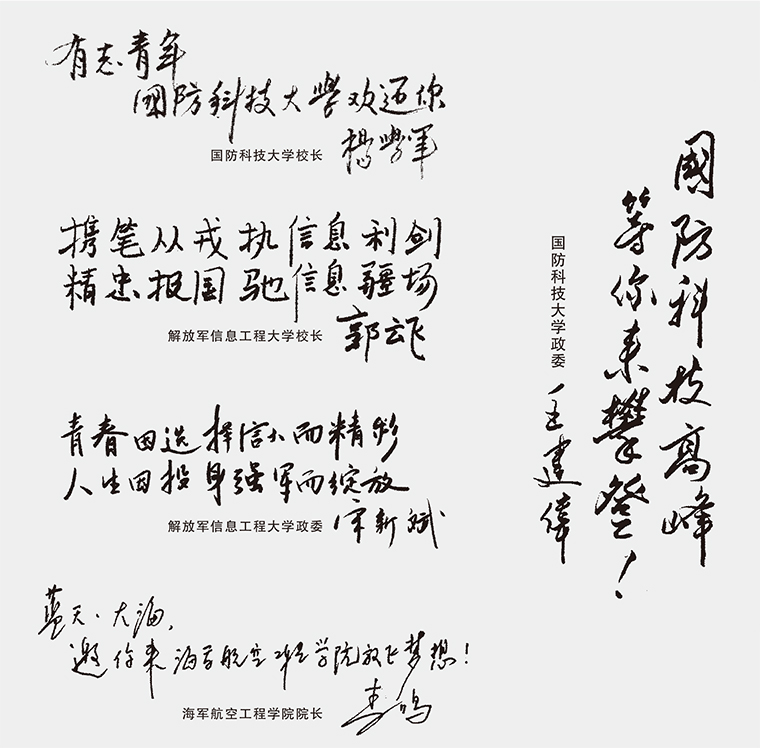 有志青年
國防科技大學欢迎你
国防科技大学校长
楊學军
携笔从戎执信息利剑
精忠报国驰信息疆场
解放军信息工程大学校长
郭云飞
青春因选择信大而精彩
人生因投身强军而绽放
解放军信息工程大学政委
宋新斌
蓝天·大海，
邀你来海军航空工程学院放飞梦想！
海军航空工程学院院长
李鸣
國防科技高峰
等你来攀登！
国防科技大学政委
王建偉